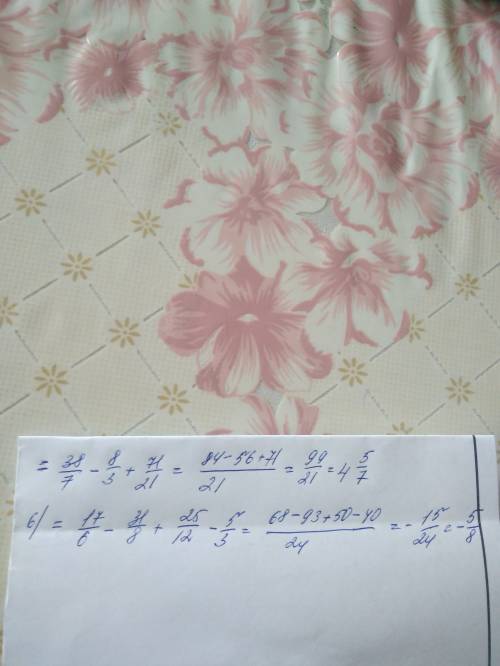 = 38/7 - 8/3 + 71/21 = 84-56+71/21 = 99/21 = 4 5/7
б) = 17/6 - 31/8 + 25/12 - 5/3 = 68-93+50-40/24 = -15/24 = -5/8